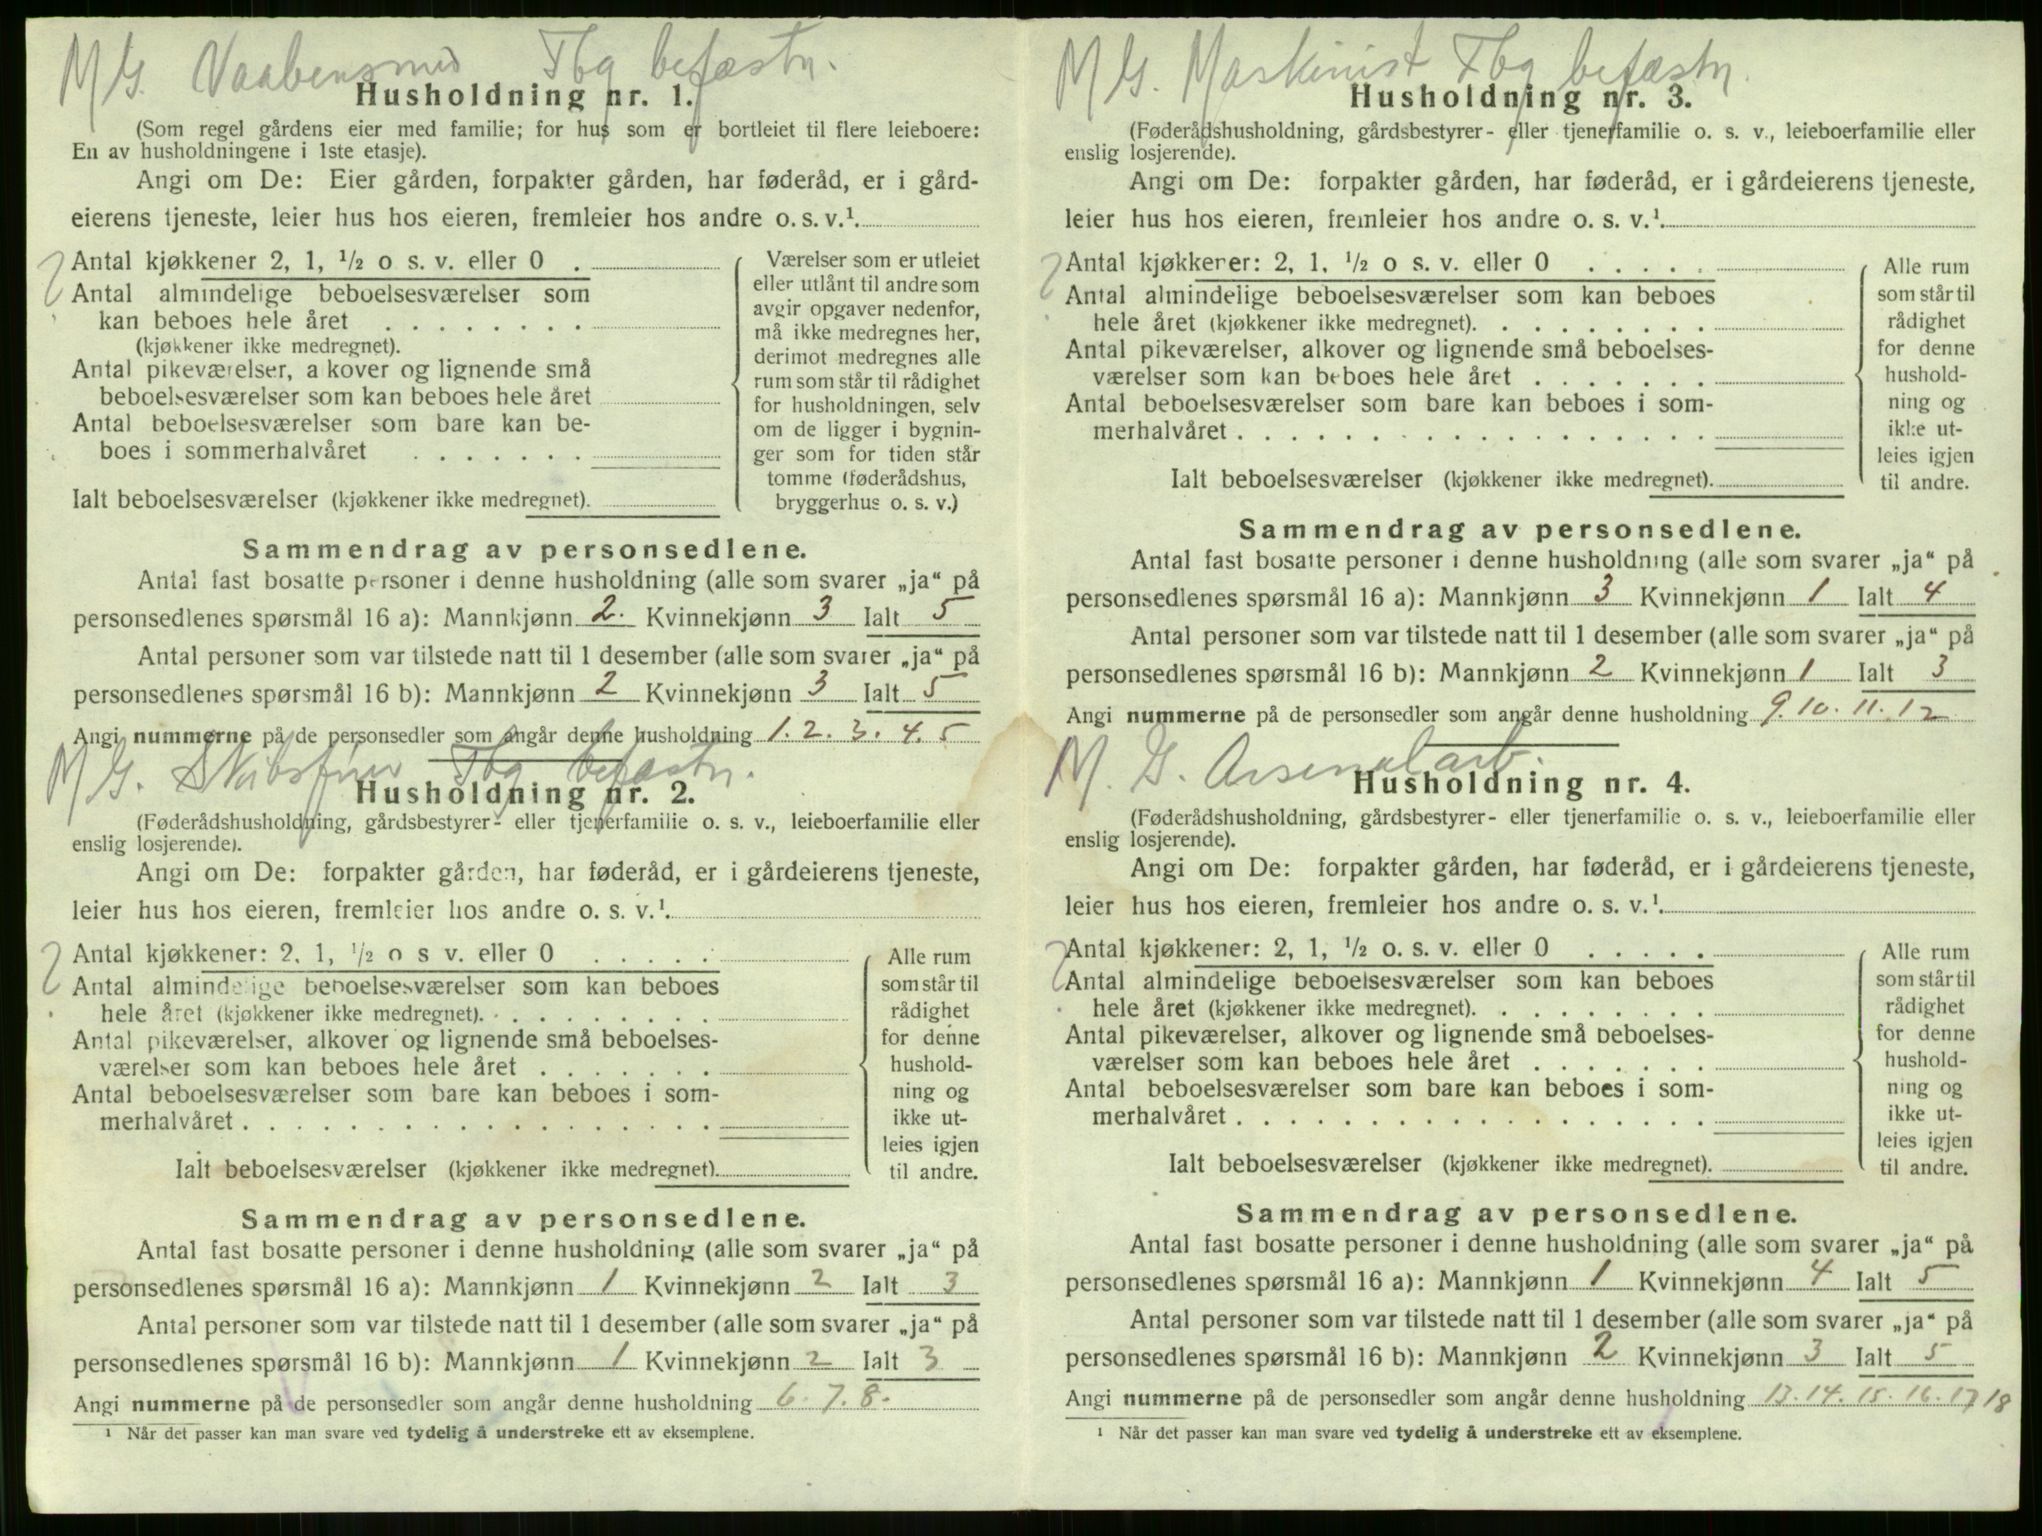 M G. Vaabensmed Tbg befæstn.
Husholdning nr. 1.
(Som regel gårdens eier med familie; for hus som er bortleiet til flere leieboere:
En av husholdningene i 1ste etasje).
Angi om De: Eier gården, forpakter gården, har føderåd, er i gård-
eierens tjeneste, leier hus hos eieren, fremleier hos andre o. s. v.¹.
? Antal kjøkkener 2, 1, ½ o s. v. eller 0 .
Antal almindelige beboelsesværelser som
kan beboes hele året . . . . . . . .
(kjøkkener ikke medregnet).
Antal pikeværelser, a kover og lignende små
beboelsesværelser som kan beboes hele året
Antal beboelsesværelser som bare kan be-
boes i sommerhalvåret . . . . . . .
Ialt beboelsesværelser (kjøkkener ikke medregnet).
Værelser som er utleiet
eller utlånt til andre som
avgir opgaver nedenfor,
må ikke medregnes her,
derimot medregnes alle
rum som står til rådighet
for husholdningen, selv
om de ligger i bygnin-
ger som for tiden står
tomme (føderådshus,
bryggerhus o. s. v.)
Sammendrag av personsedlene.
Antal fast bosatte personer i denne husholdning (alle som svarer „ja“ på
personsedlenes spørsmål 16 a): Mannkjønn 2. Kvinnekjønn 3 Ialt 5
Antal personer som var tilstede natt til 1 desember (alle som svarer „ja“ på
personsedlenes spørsmål 16 b): Mannkjønn 2 Kvinnekjønn 3 Ialt 5
Angi nummerne på de personsedler som angår denne husholdning 1. 2. 3. 4. 5
M G. Skibsfører Tbg befæstn.
Husholdning nr. 2.
(Føderådshusholdning, gårdsbestyrer- eller tjenerfamilie o. s. v., leieboerfamilie eller
enslig losjerende).
Angi om De: forpakter gården, har føderåd, er i gårdeierens tjeneste,
leier hus hos eieren, fremleier hos andre o. s. v.¹.
? Antal kjøkkener: 2, 1, ½ o s v. eller 0 . . . . .
Antal almindelige beboelsesværelser som kan beboes
hele året (kjøkkener ikke medregnet). . . . . . . . .
Antal pikeværelser, alkover og lignende små beboelses-
værelser som kan beboes hele året . . . . . . .
Antal beboelsesværelser som bare kan beboes i som-
merhalvåret . . . . . . . . . . . . . . . . . .
Ialt beboelsesværelser (kjøkkener ikke medregnet).
Alle rum
som står til
rådighet
for denne
hushold-
ning og
ikke ut-
leies igjen
til andre.
Sammendrag av personsedlene.
Antal fast bosatte personer i denne husholdning (alle som svarer „ja“ på
personsedlenes spørsmål 16 a): Mannkjønn 1 Kvinnekjønn 2 Ialt 3
Antal personer som var tilstede natt til 1 desember (alle som svarer „ja“ på
personsedlenes spørsmål 16 b): Mannkjønn 1 Kvinnekjønn 2 Ialt 3
Angi nummerne på de personsedler som angår denne husholdning 6. 7. 8.
¹ Når det passer kan man svare ved tydelig å understreke ett av eksemplene.
M G. Maskinist Tbg befæstn.
Husholdning nr. 3.
(Føderådshusholdning, gårdsbestyrer- eller tjenerfamilie o. s. v., leieboerfamilie eller
enslig losjerende).
Angi om De: forpakter gården, har føderåd, er i gårdeierens tjeneste,
leier hus hos eieren, fremleier hos andre o. s. v.¹.
? Antal kjøkkener: 2, 1, ½ o s. v. eller 0 . . . . .
Antal almindelige beboelsesværelser som kan beboes
hele året (kjøkkener ikke medregnet). . . . . . . . .
Antal pikeværelser, alkover og lignende små beboelses-
værelser som kan beboes hele året . . . . . . .
Antal beboelsesværelser som bare kan beboes i som-
merhalvåret . . . . . . . . . . . . . . . . . .
Ialt beboelsesværelser (kjøkkener ikke medregnet).
Alle rum
som står til
rådighet
for denne
hushold-
ning og
ikke ut-
leies igjen
til andre.
Sammendrag av personsedlene.
Antal fast bosatte personer i denne husholdning (alle som svarer „ja“ på
personsedlenes spørsmål 16 a): Mannkjønn 3 Kvinnekjønn 1 Ialt 4
Antal personer som var tilstede natt til 1 desember (alle som svarer „ja“ på
personsedlenes spørsmål 16 b): Mannkjønn 2 Kvinnekjønn 1 Ialt 3
Angi nummerne på de personsedler som angår denne husholdning 9. 10. 11. 12
M. G. Arsenalarb.
Husholdning nr. 4.
(Føderådshusholdning, gårdsbestyrer- eller tjenerfamilie o. s. v., leieboerfamilie eller
enslig losjerende).
Angi om De: forpakter gården, har føderåd, er i gårdeierens tjeneste,
leier hus hos eieren, fremleier hos andre o. s. v.¹.
? Antal kjøkkener: 2, 1, ½ o. s. v. eller 0 . . . . .
Antal almindelige beboelsesværelser som kan beboes
hele året (kjøkkener ikke medregnet). . . . . . . . .
Antal pikeværelser, alkover og lignende små beboelses-
værelser som kan beboes hele året . . . . . . .
Antal beboelsesværelser som bare kan beboes i som-
merhalvåret . . . . . . . . . . . . . . . . . .
Ialt beboelsesværelser (kjøkkener ikke medregnet).
Alle rum
som står til
rådighet
for denne
hushold-
ning og
ikke ut-
leies igjen
til andre.
Sammendrag av personsedlene.
Antal fast bosatte personer i denne husholdning (alle som svarer „ja“ på
personsedlenes spørsmål 16 a): Mannkjønn 1 Kvinnekjønn 4 Ialt 5
Antal personer som var tilstede natt til 1 desember (alle som svarer „ja“ på
personsedlenes spørsmål 16 b): Mannkjønn 2 Kvinnekjønn 3 Ialt 5
Angi nummerne på de personsedler som angår denne husholdning 13. 14. 15. 16. 17 18
¹ Når det passer kan man svare ved tydelig å understreke ett av eksemplene.